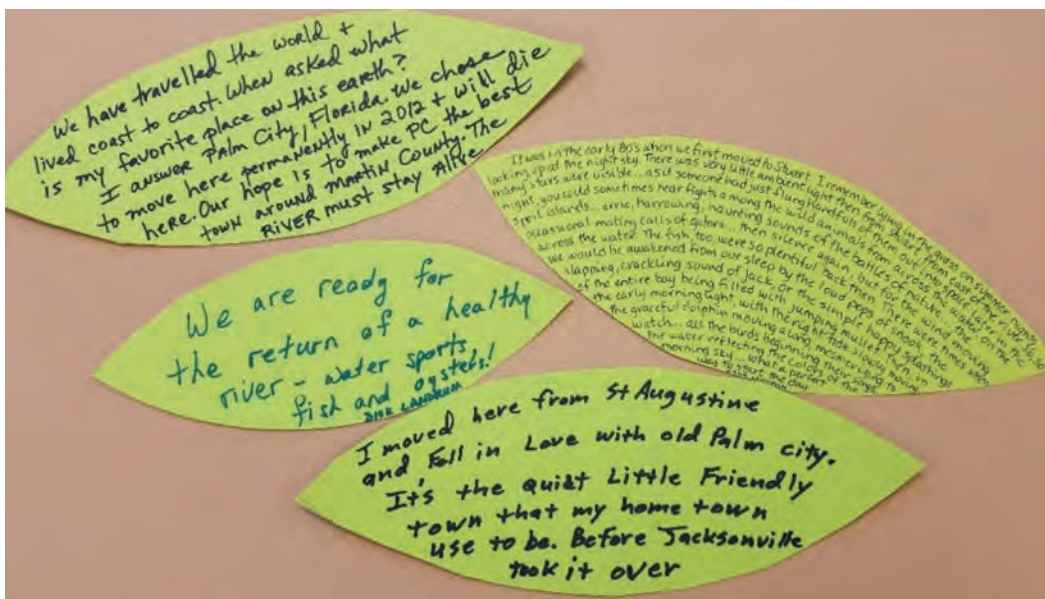 We have travelled the world +
lived coast to coast. When asked what
is my favorite place on this earth?
I answer Palm City, Florida. We chose
to move here permanently in 2012 + will die
here. Our hope is to make PC the best
town around Martin County. The
RIVER must stay Alive
It was in the early 80's when we first moved to Stuart. I remember lying on the grass on summer nights,
looking up at the night sky. There was very little ambient light then from
many stars were visible... as if someone had just flung handfuls of them out into space. Later in the
night, you could sometimes hear fights among the wild animals from across the water on the
spoil islands... eerie, harrowing, haunting sounds of the battles of nature... then the
occasional mating calls of gators... then silence again, but for the wind moving
across the water. The fish, too, were so plentiful back then. There were times when
we would be awakened from our sleep by the loud pops of snook, the
slapping, crackling sound of jack, or the simple happy splashings
of the entire bay being filled with jumping mullet. Then in
the early morning light, with the right tide, you
the graceful dolphin moving along, mesmerizing to
watch... all the birds beginning their songs,
the water reflecting the colors of the
morning sky... what a perfect
way to start the day
We are ready for
the return of a healthy
river – water sports,
fish and oysters!
DIRK LANDRUM
I moved here from St Augustine
and, Fell in Love with old Palm city.
It's the quiet Little Friendly
town that my home town
use to be. Before Jacksonville
took it over